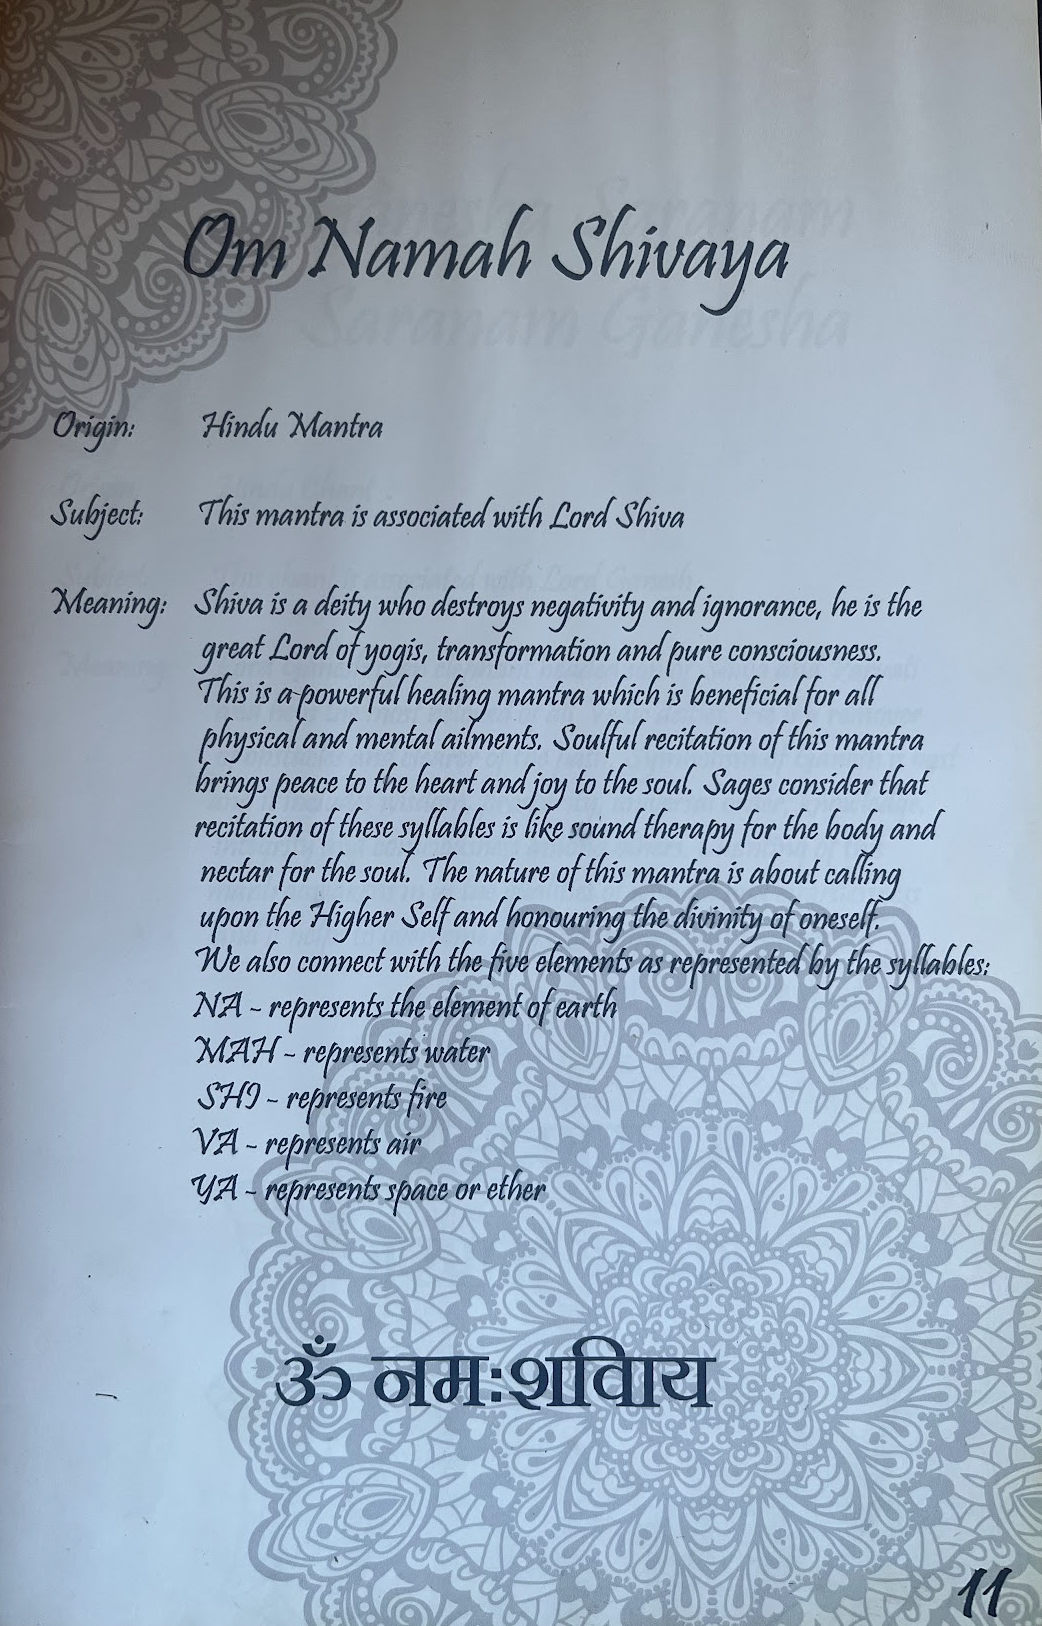 Om Namah Shivaya
Origin: Hindu Mantra
Subject: This mantra is associated with Lord Shiva
Meaning: Shiva is a deity who destroys negativity and ignorance, he is the
great Lord of yogis, transformation and pure consciousness.
This is a powerful healing mantra which is beneficial for all
physical and mental ailments. Soulful recitation of this mantra
brings peace to the heart and joy to the soul. Sages consider that
recitation of these syllables is like sound therapy for the body and
nectar for the soul. The nature of this mantra is about calling
upon the Higher Self and honouring the divinity of oneself.
We also connect with the five elements as represented by the syllables:
NA - represents the element of earth
MAH - represents water
SHI - represents fire
VA - represents air
YA - represents space or ether
ॐ नमःशविाय
11